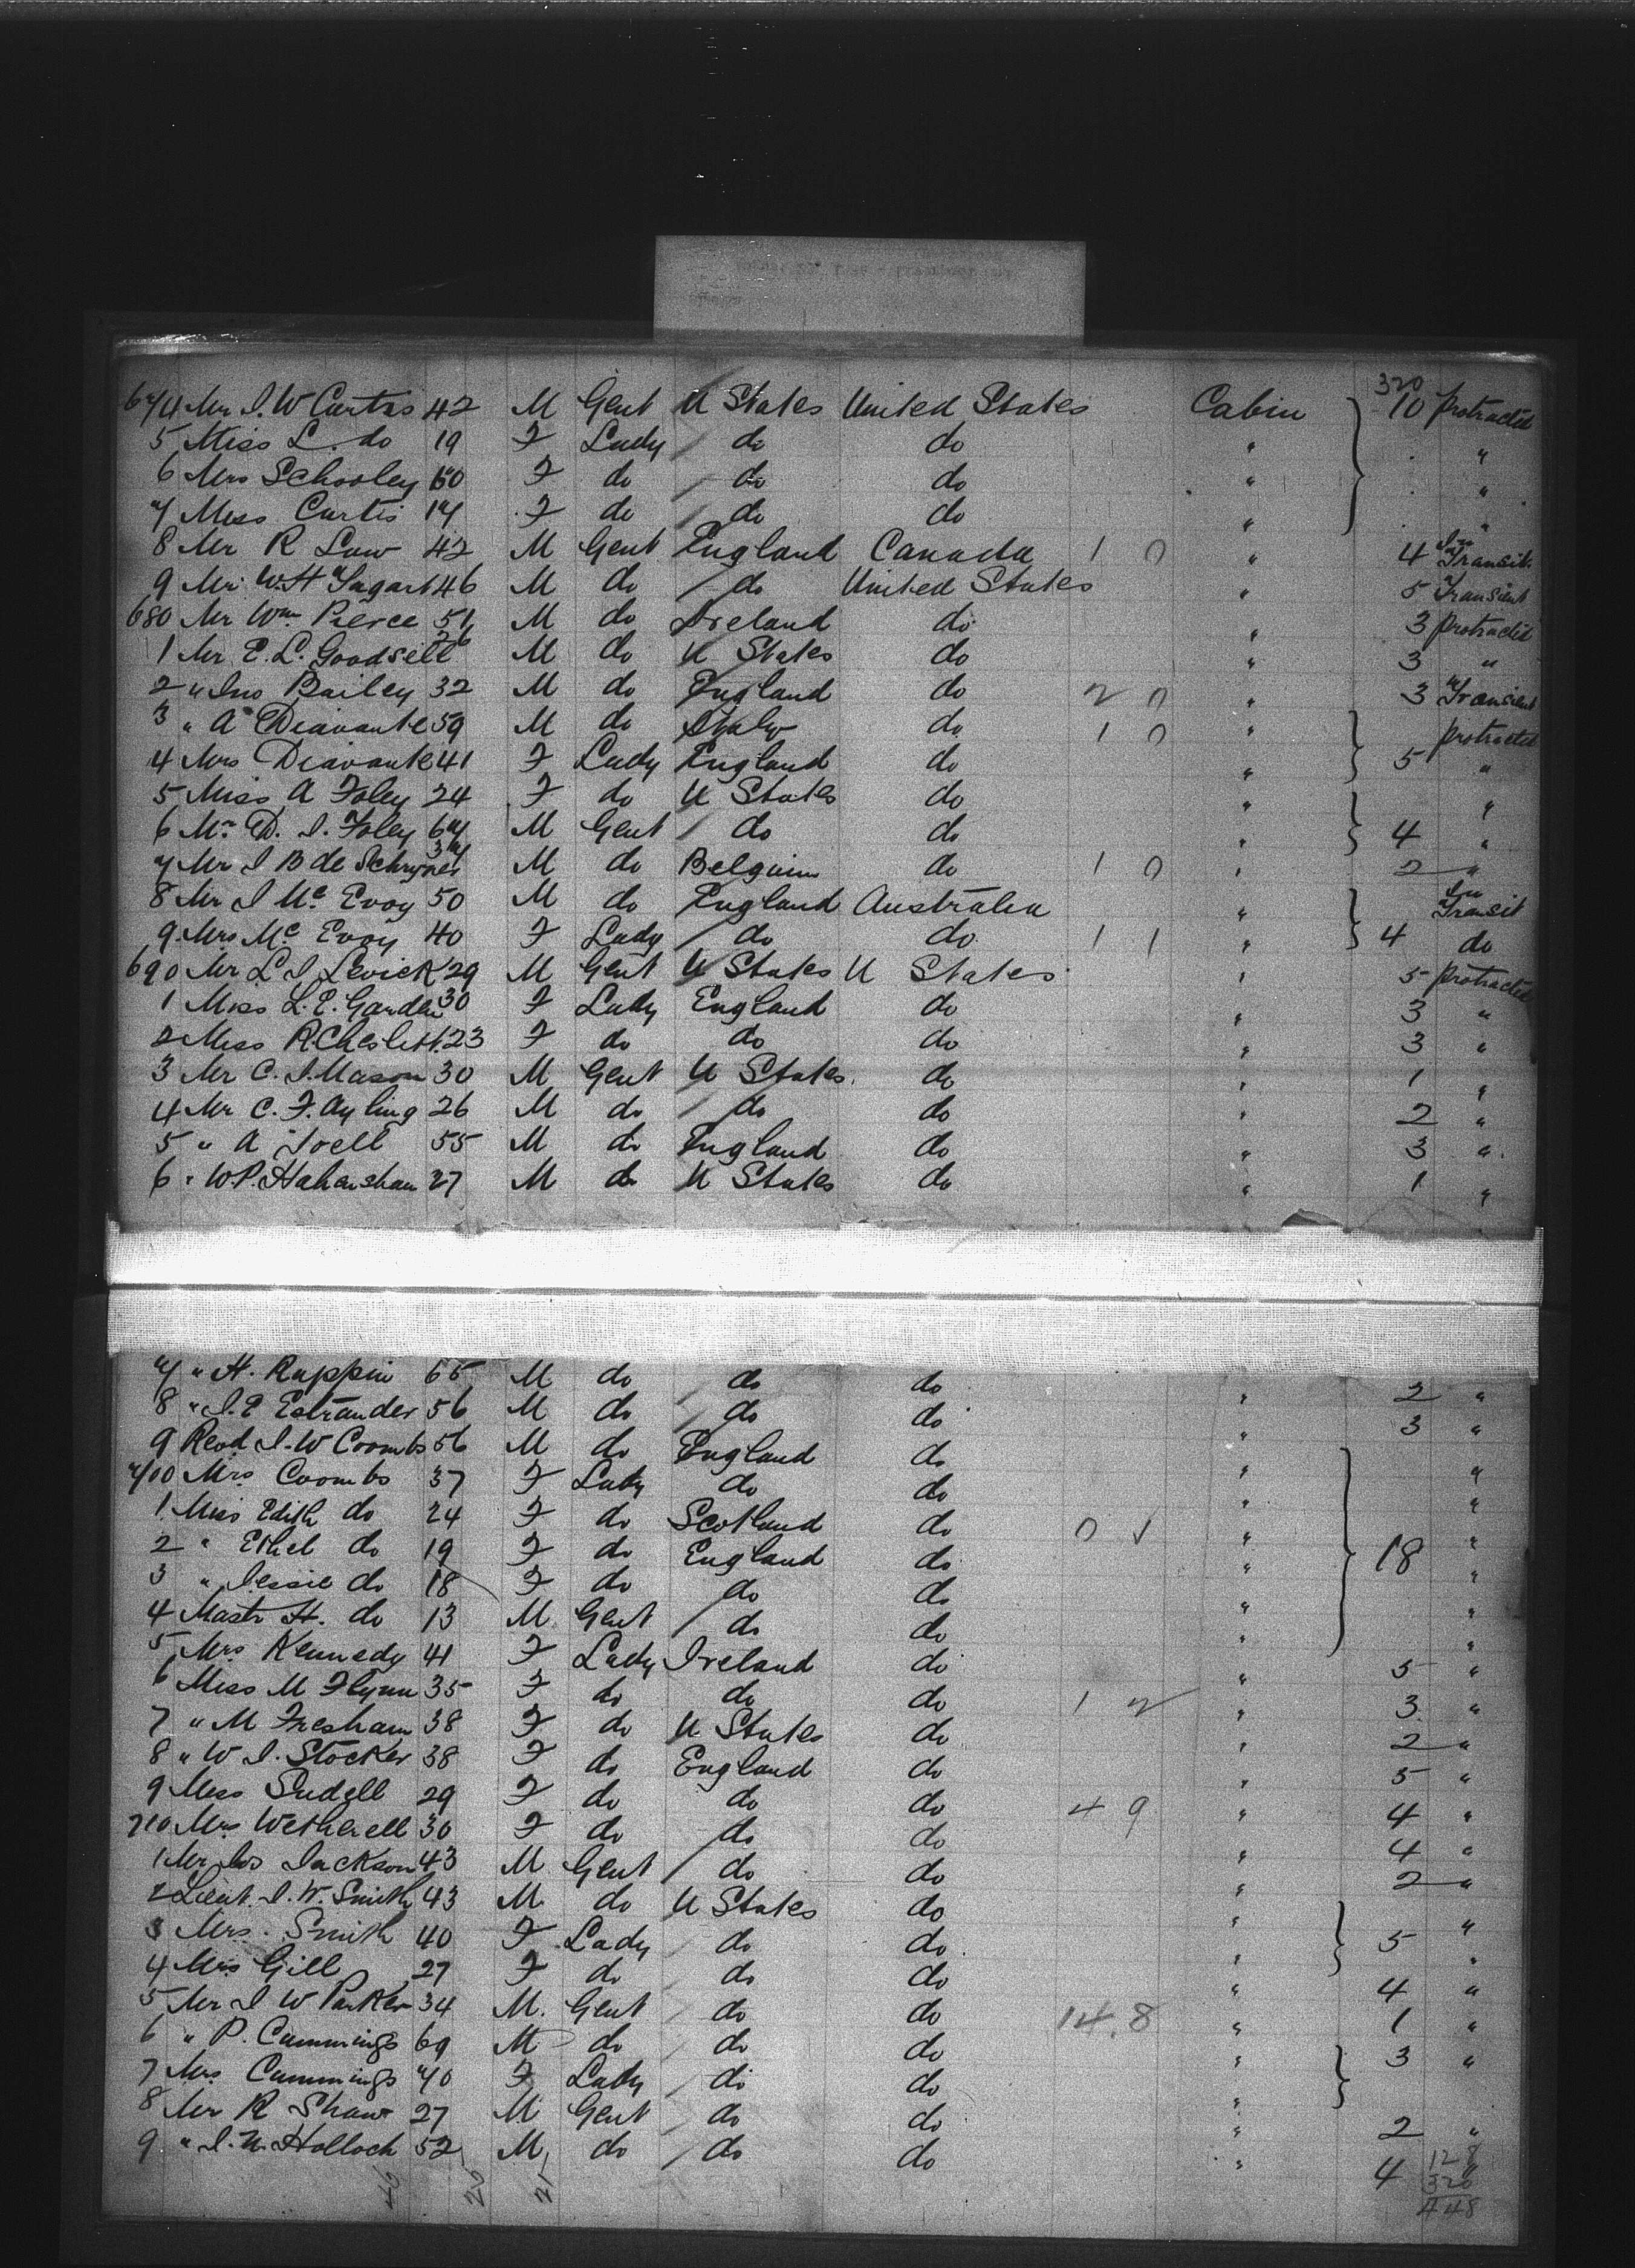 320
674 Mr J. W Curtis 42 M Gent U States United States Cabin 10 protracted
5 Miss L. do 19 F Lady do do " "
6 Mrs Schooley 50 F do do do " "
7 Miss Curtis 17 F do do do " "
8 Mr R Law 42 M Gent England Canada 1 0 " 4 In Transit
9 Mr W. H Tagart 46 M do do United States " 5 Transient
680 Mr Wm Pierce 51 M do Ireland do " 3 protracted
1 Mr E. L. Goodsell 26 M do U States do " 3 "
2 " Jno Bailey 32 M do England do 2 0 " 3 Transient
3 " A Diavante 59 M do Italy do 1 0 " protracted
4 Mrs Diavante 41 F Lady England do " 5 "
5 Miss A Foley 24 F do U States do " "
6 Mr D. J. Foley 67 M Gent do do " 4 "
7 Mr J B de Schryner 37 M do Belgium do 1 0 " 2 "
8 Mr J Mc Evoy 50 M do England Australia " In Transit
9 Mrs Mc Evoy 40 F Lady do do 1 1 " 4 do
690 Mr L J Levick 29 M Gent U States U States " 5 protracted
1 Miss L. E. Garden 30 F Lady England do " 3 "
2 Miss R. Cheslett 23 F do do do " 3 "
3 Mr C. J. Mason 30 M Gent U States do " 1 "
4 Mr C. F. Ayling 26 M do do do " 2 "
5 " A Joell 55 M do England do " 3 "
6 " W. P. Hahenshau 27 M do U States do " 1 "
7 " H. Ruppin 65 M do do do " 2 "
8 " J. E Estrander 56 M do do do " 3 "
9 Revd J. W Coombs 56 M do England do " "
700 Mrs Coombs 37 F Lady do do " "
1 Miss Edith do 24 F do Scotland do 0 1 " "
2 " Ethel do 19 F do England do " 18 "
3 " Jessie do 18 F do do do " "
4 Mastr H. do 13 M Gent do do " "
5 Mrs Kennedy 41 F Lady Ireland do " 5 "
6 Miss M Flynn 35 F do do do 1 2 " 3 "
7 " M Fresham 38 F do U States do " 2 "
8 " W J. Stocker 38 F do England do " 5 "
9 Miss Sudell 29 F do do do 4 9 " 4 "
710 Mrs Wetherell 30 F do do do " 4 "
1 Mr Jos Jackson 43 M Gent do do " 2 "
2 Lieut. J. W. Smith 43 M do U States do " "
3 Mrs. Smith 40 F Lady do do " 5 "
4 Miss Gill 27 F do do do " 4 "
5 Mr J W Parker 34 M. Gent do do 14.8 " 1 "
6 " P. Cummings 69 M do do do " 3 "
7 Mrs Cummings 70 F Lady do do "
8 Mr R Shaw 27 M Gent do do " 2 "
9 " J. N. Holloch 52 M do do do " 4 "
128
320
448